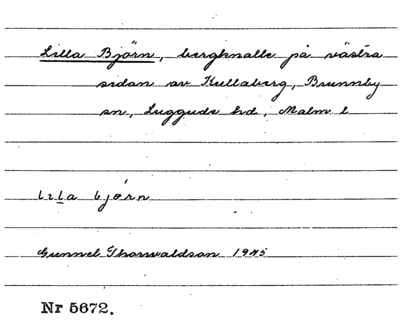 Lilla Björn, bergknalle på västra
sidan av Kullaberg, Brunnby
sn, Luggude hd, Malm l
lɩla bjórn
Gunnel Thorwaldson 1945
Nr 5672.